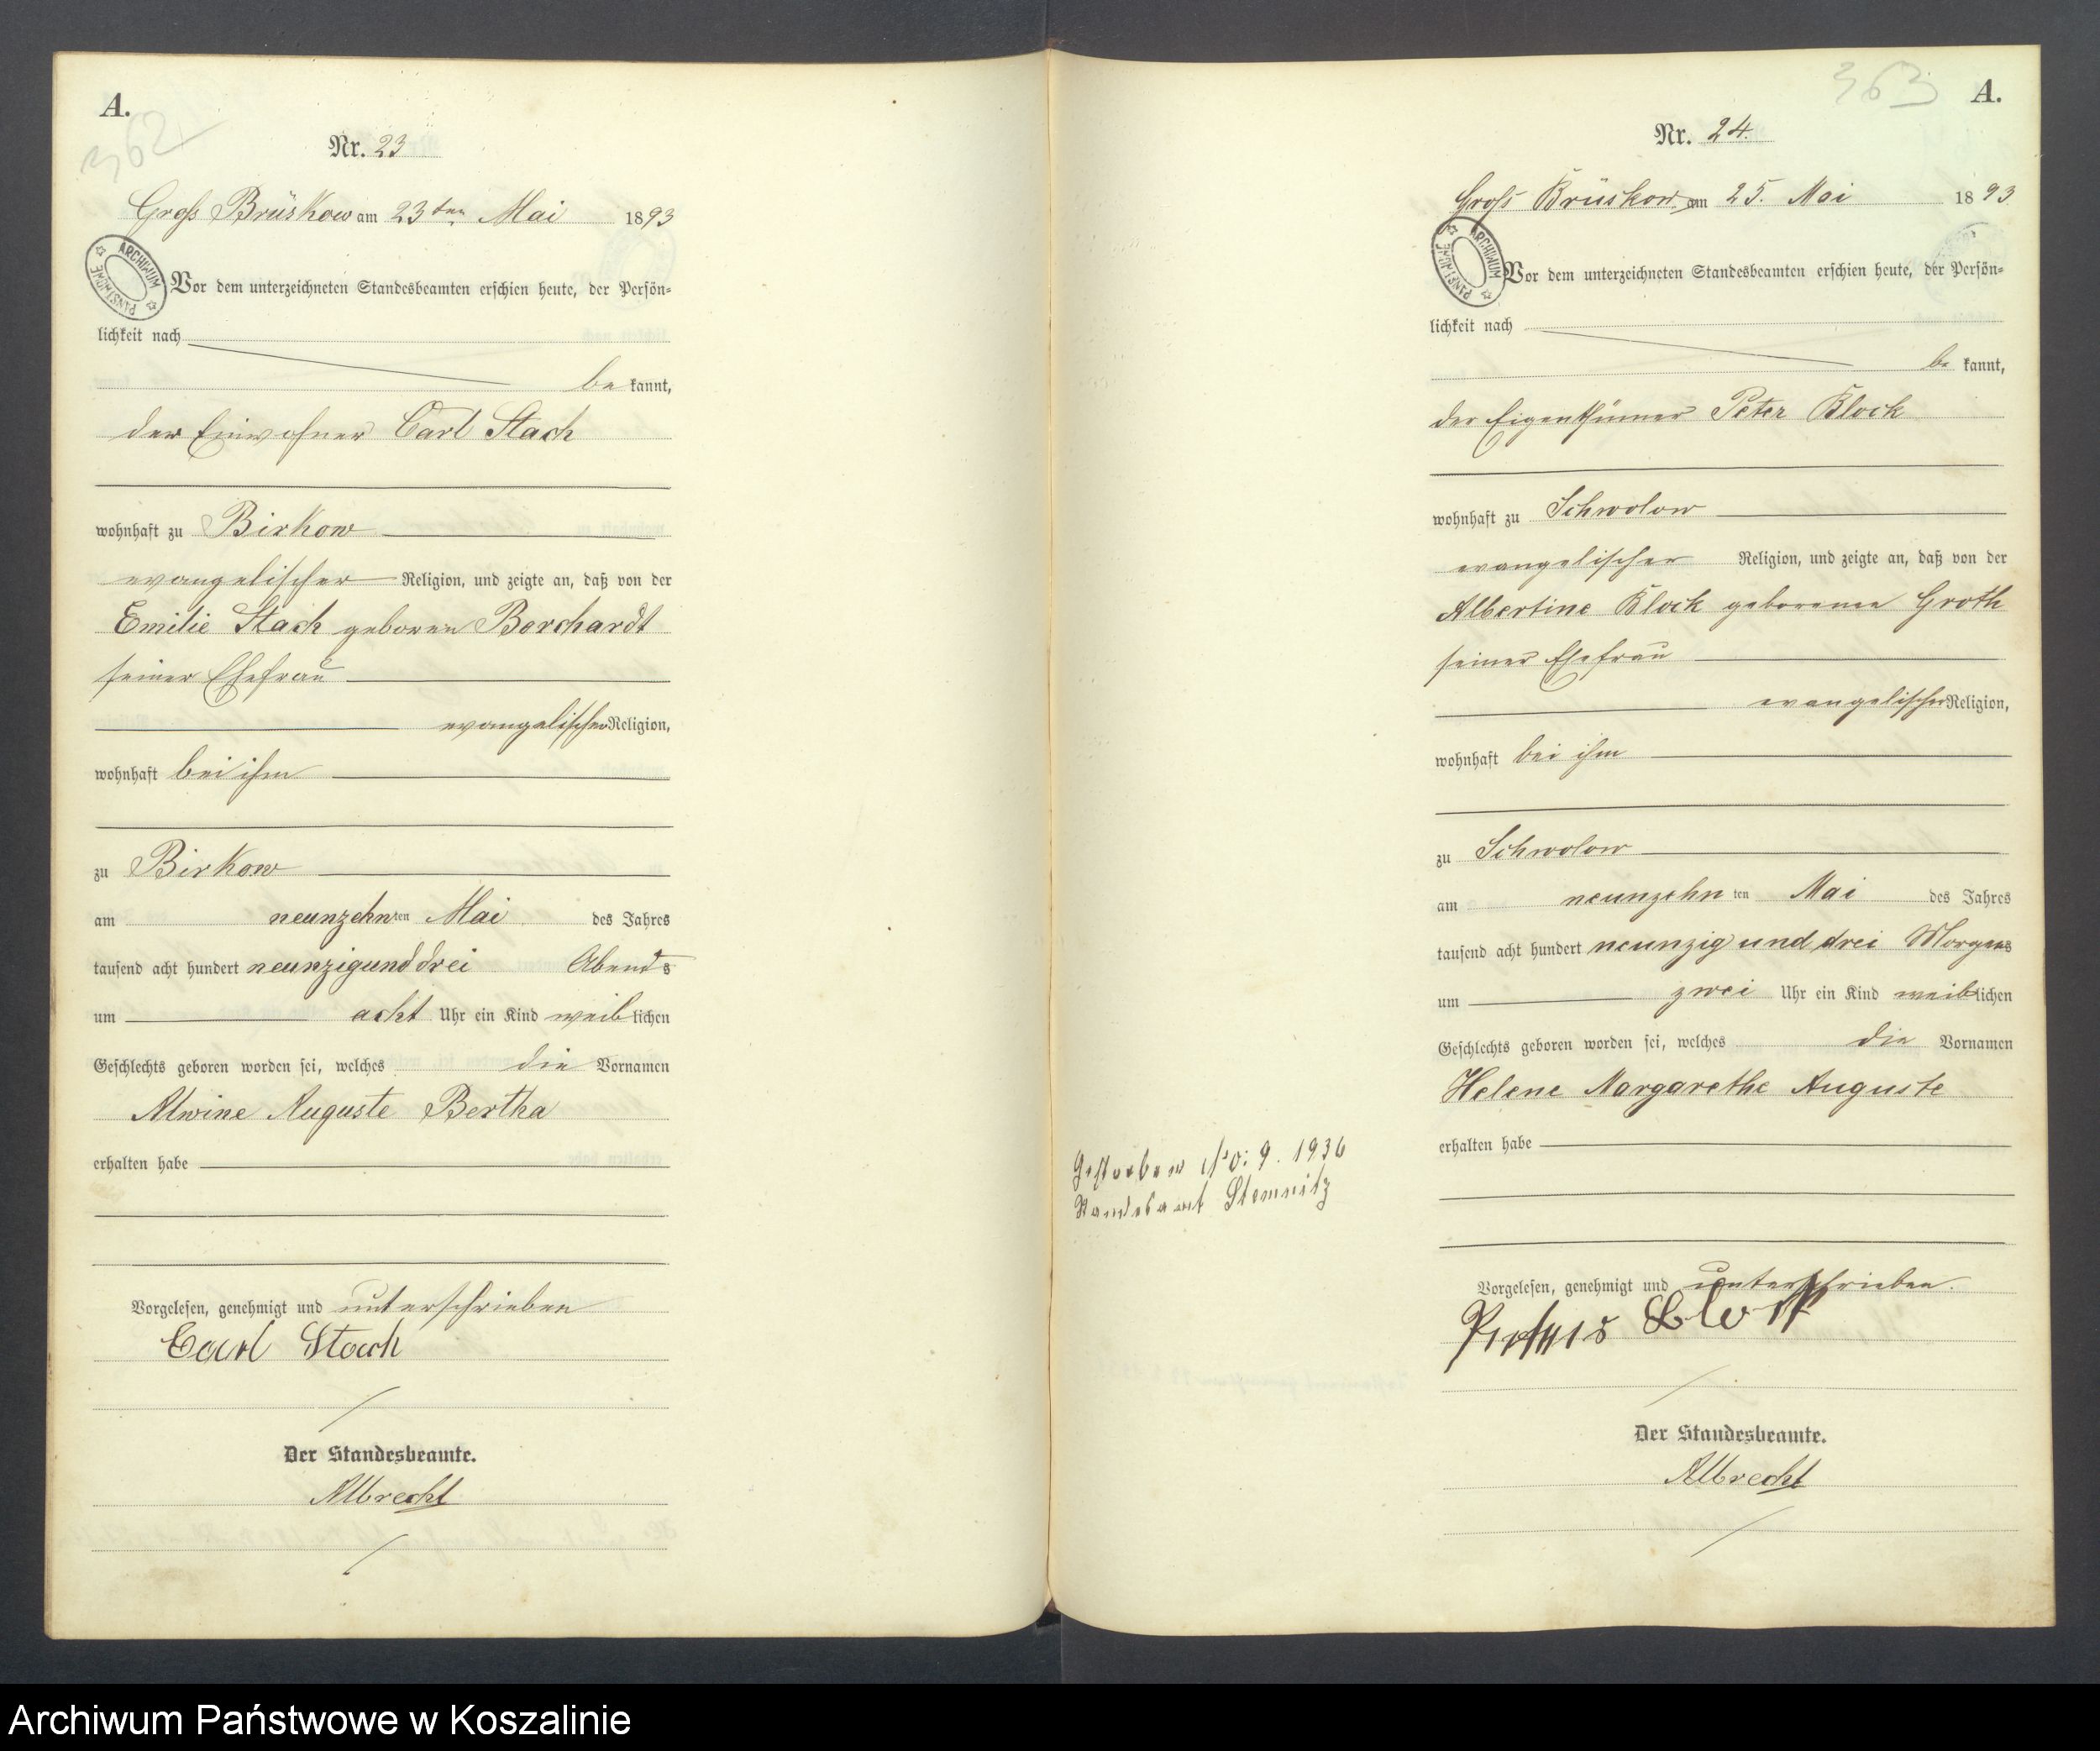 A.
362
Nr. 23
Groß Brüskow am 23ten Mai 1893
ARCHIWUM PAŃSTWOWE
Vor dem unterzeichneten Standesbeamten erschien heute, der Persön-
lichkeit nach
be kannt,
der Einwohner Carl Stach
wohnhaft zu Birkow
evangelischer Religion, und zeigte an, daß von der
Emilie Stach geboren Borchardt
seiner Ehefrau
evangelischer Religion,
wohnhaft bei ihm
zu Birkow
am neunzehnten Mai des Jahres
tausend acht hundert neunzigunddrei Abends
um acht Uhr ein Kind weiblichen
Geschlechts geboren worden sei, welches die Vornamen
Alwine Auguste Bertha
erhalten habe
Vorgelesen, genehmigt und unterschrieben
Carl Stach
Der Standesbeamte.
Albrecht
363
A.
Nr. 24.
Groß Brüskow am 25. Mai 1893
ARCHIWUM PAŃSTWOWE
Vor dem unterzeichneten Standesbeamten erschien heute, der Persön-
lichkeit nach
be kannt,
der Eigenthümer Peter Block
wohnhaft zu Schwolow
evangelischer Religion, und zeigte an, daß von der
Albertine Block geborenen Groth
seiner Ehefrau
evangelischer Religion,
wohnhaft bei ihm
zu Schwolow
am neunzehn ten Mai des Jahres
tausend acht hundert neunzig und drei Morgens
um zwei Uhr ein Kind weiblichen
Geschlechts geboren worden sei, welches die Vornamen
Helene Margarethe Auguste
erhalten habe
Gestorben No: 9. 1936
Standesamt Stemnitz
Vorgelesen, genehmigt und unterschrieben.
Block
Der Standesbeamte.
Albrecht
Archiwum Państwowe w Koszalinie